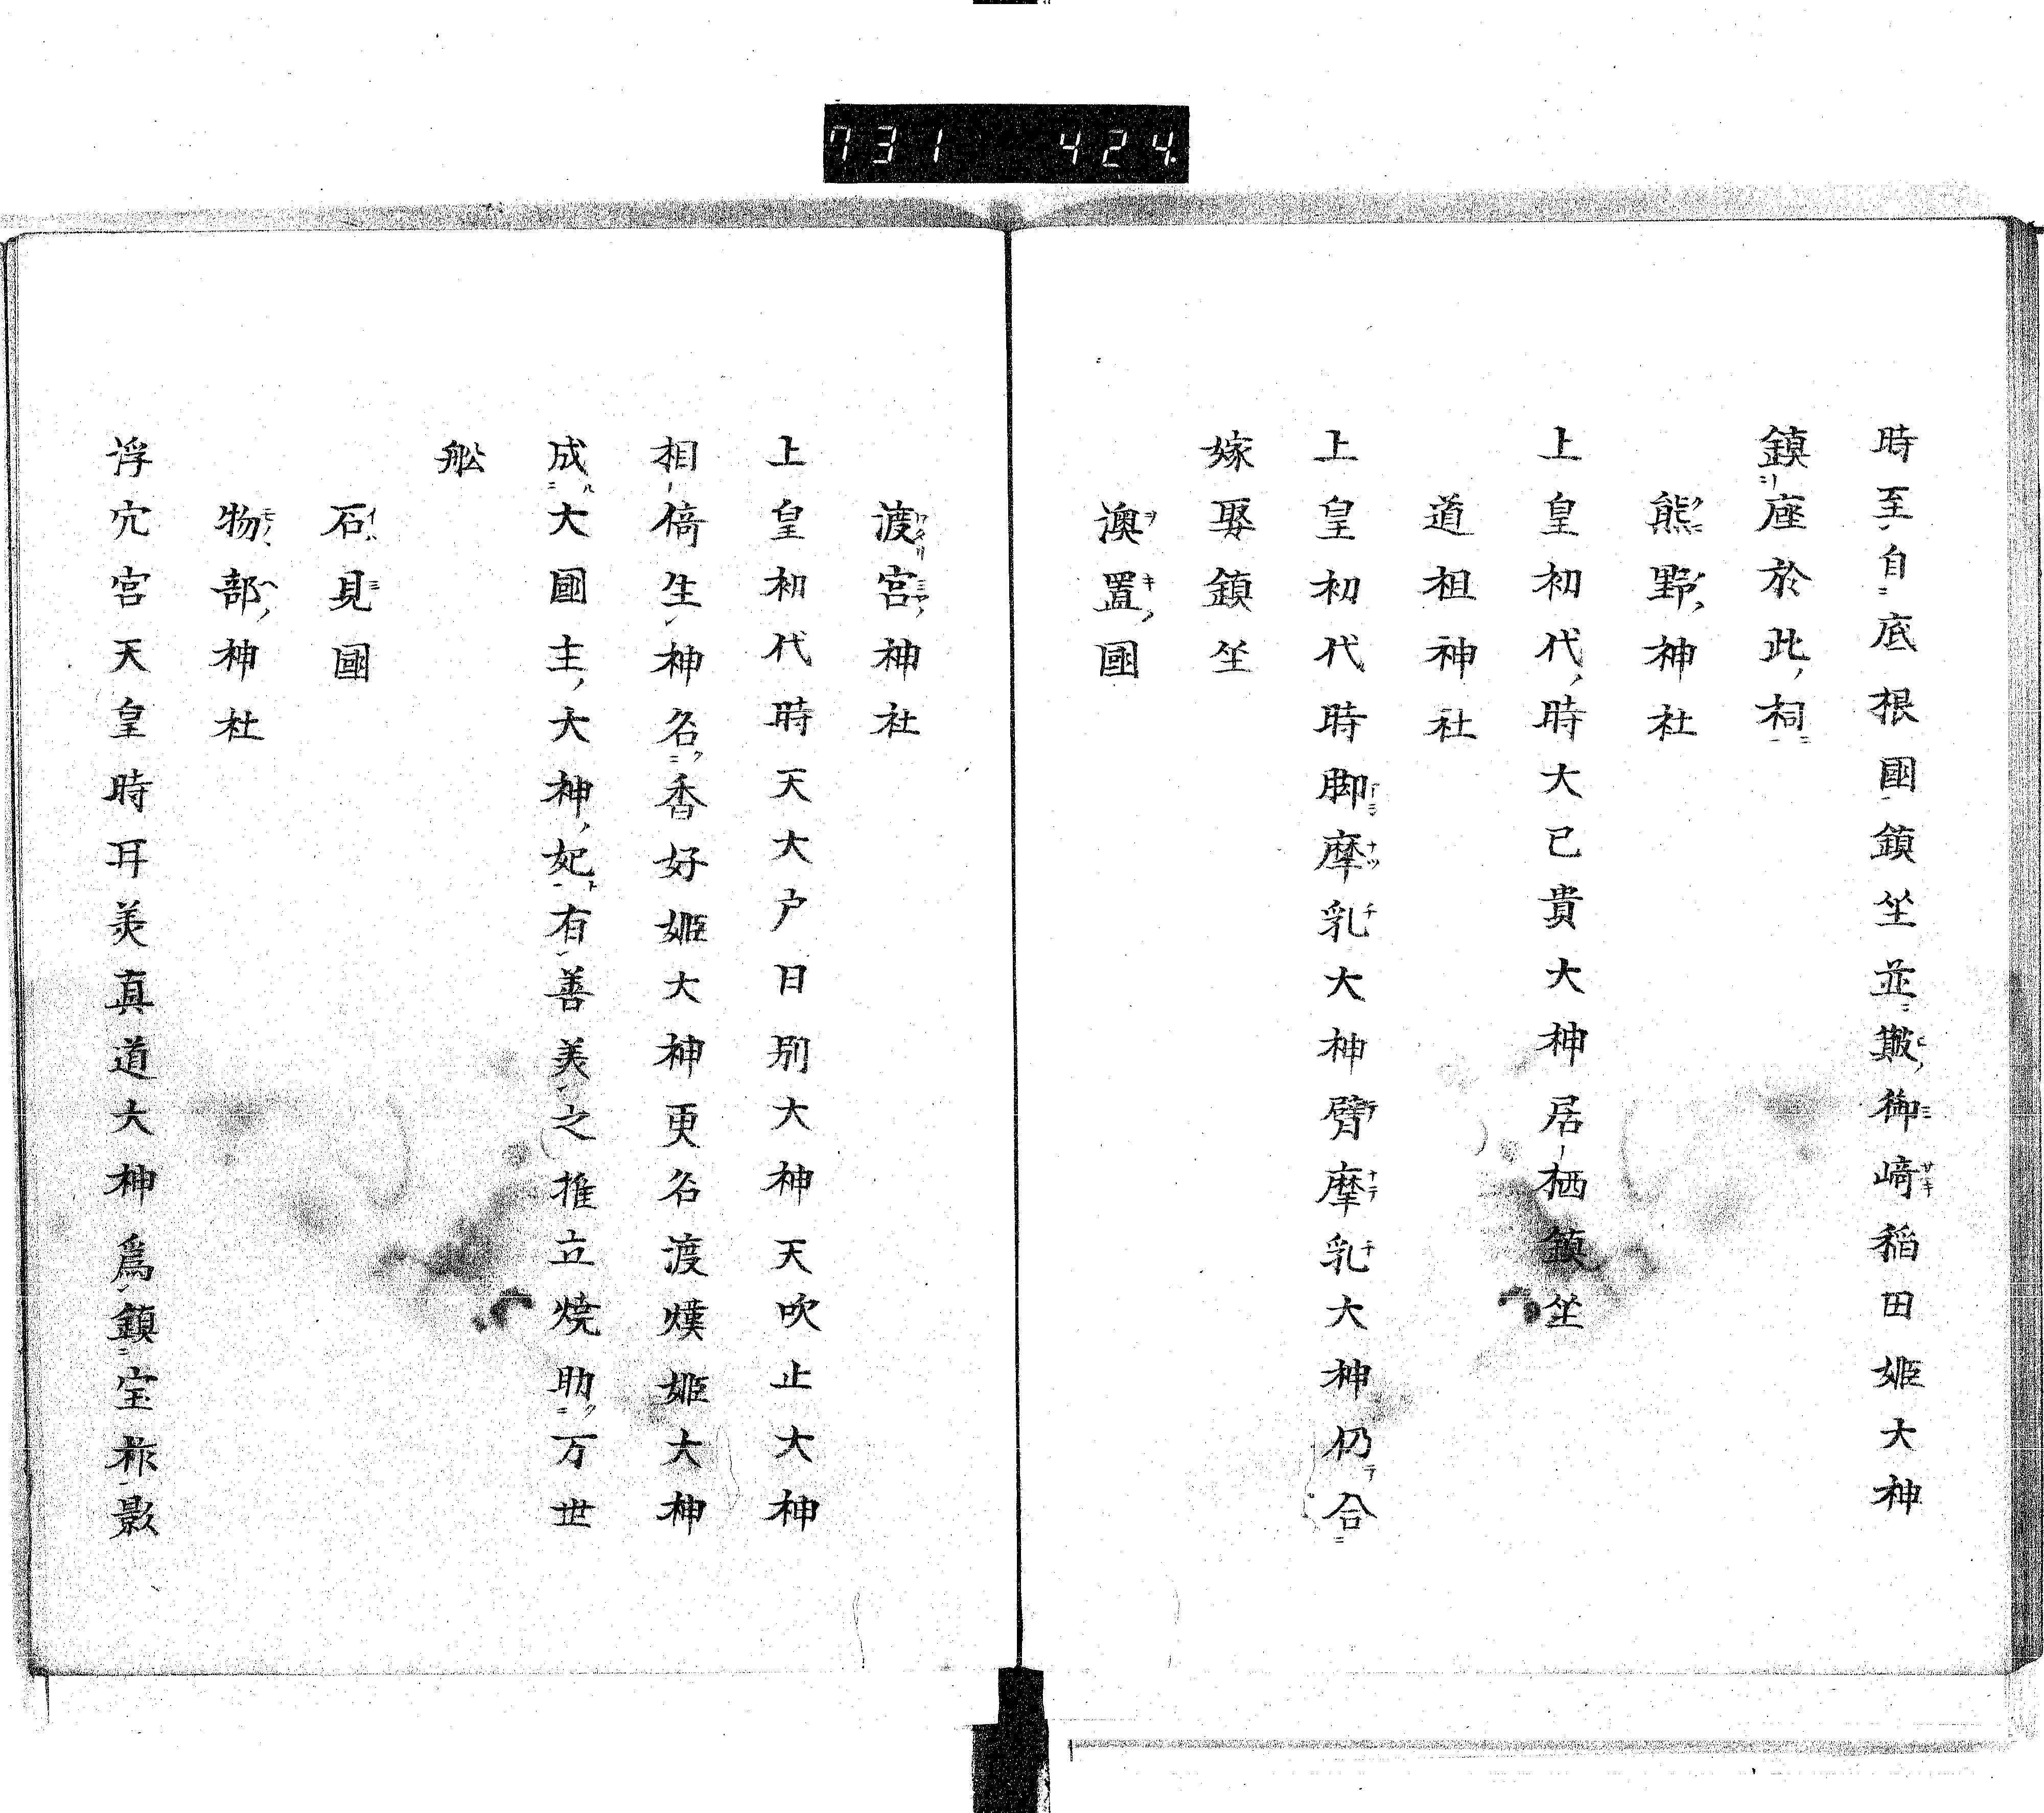 731 424
時至自底根國鎮坐並㩻御﨑稲田姫大神
鎮座於此祠
熊野神社
上皇初代時大已貴大神居栖鎮坐
道祖神社
上皇初代時脚摩乳大神臂摩乳大神仍合
嫁娶鎮坐
澳置國
渡宮神社
上皇初代時天大户日別大神天吹止大神
相倚生神名香好姫大神更名渡熯姫大神
成大國主大神妃有善美之推立燒助万世
舩
石見國
物部神社
浮穴宮天皇時耳美真道大神為鎮宝祚影